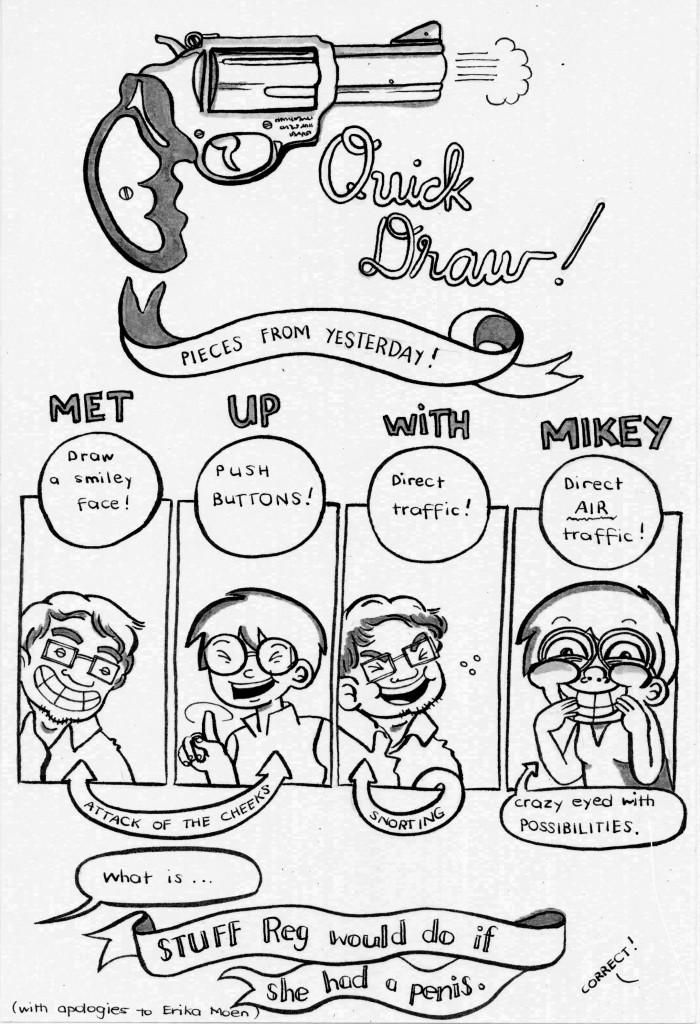 Quick
Draw!
PIECES FROM YESTERDAY!
MET UP WITH MIKEY
Draw
a smiley
face!
PUSH
BUTTONS!
Direct
traffic!
Direct
AIR
traffic!
ATTACK OF THE CHEEKS
SNORTING
crazy eyed with
POSSIBILITIES.
What is ...
STUFF Reg would do if
she had a penis.
CORRECT!
(with apologies to Erika Moen)